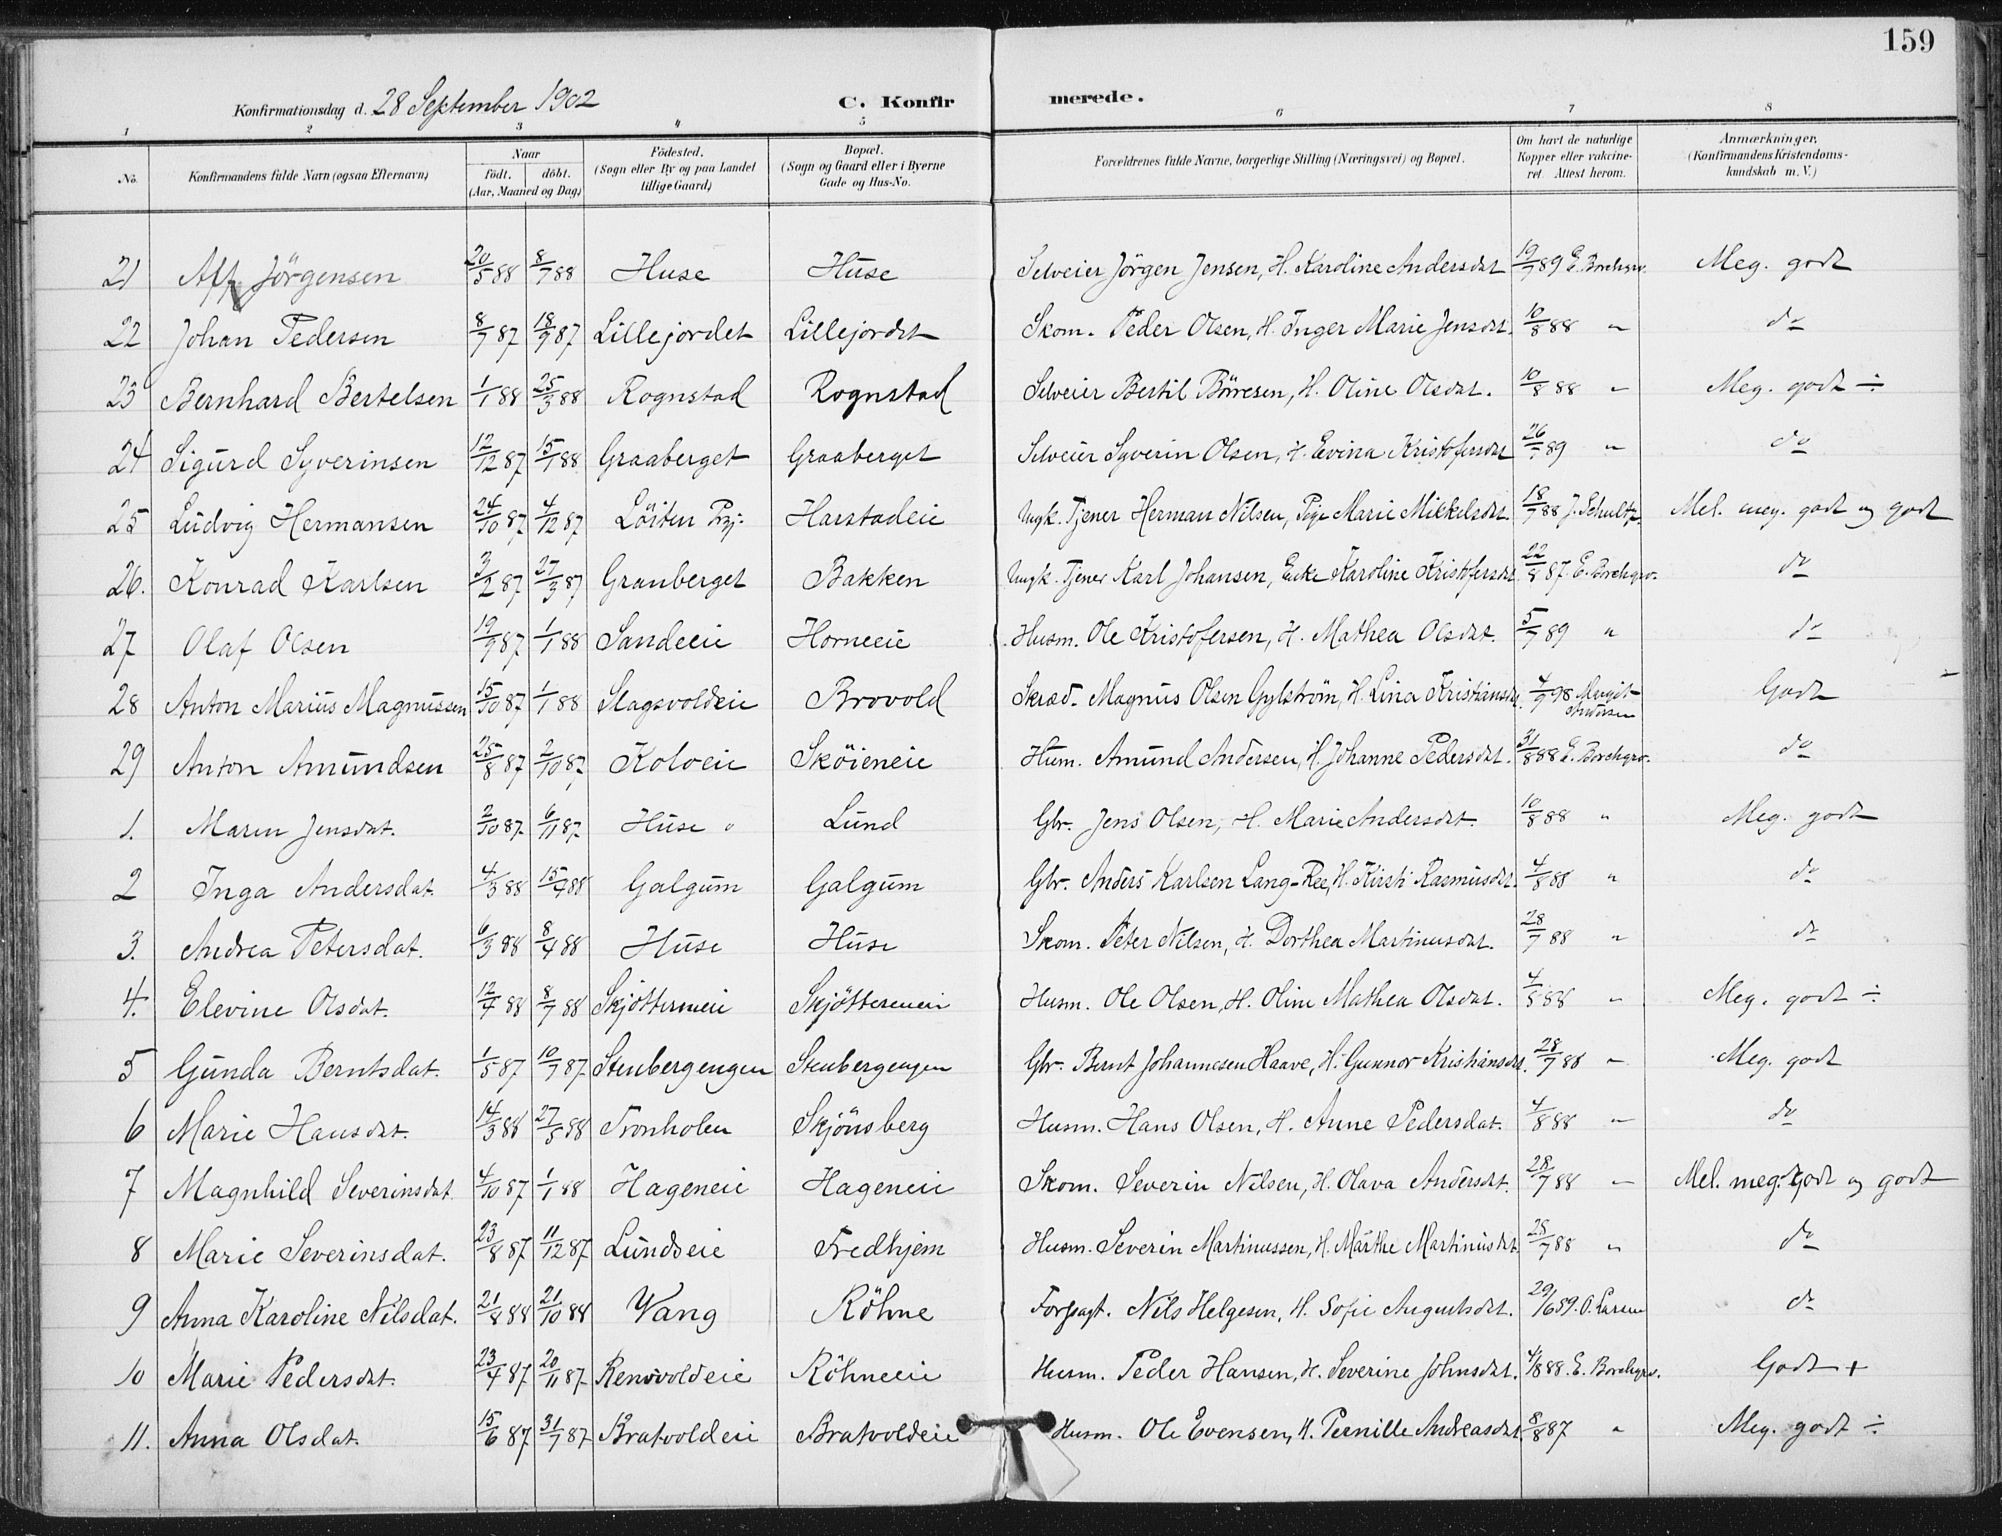 159
Konfirmationsdag d. 28 September 1902 C. Konfirmerede.
1 2 3 4 5 6 7 8
No. Konfirmandens fulde Navn (ogsaa Efternavn) Naar födt. döbt. (Aar, Maaned og Dag) Födested. (Sogn eller By og paa Landet tillige Gaard) Bopæl. (Sogn og Gaard eller i Byerne Gade og Hus-No. Forældrenes fulde Navne, borgerlige Stilling (Næringsvei) og Bopæl. Om havt de naturlige Kopper eller vakcineret. Attest herom. Anmærkninger, (Konfirmandens Kristendomskundskab m. V.)
21 Alf Jörgensen 20/5 88 8/7 88 Huse Huse Selveier Jörgen Jensen, H. Karoline Andersdat 19/7 89 E. Borchgrv. Meg. godt
22 Johan Pedersen 8/7 87 18/9 87 Lillejordet Lillejordet Skom. Peder Olsen, H. Inger Marie Jensdat. 10/8 88 " do
23 Bernhard Bertelsen 1/1 88 25/3 88 Rognstad Rognstad Selveier Bertil Börresen, H. Oline Olsdat. 10/8 88 " Meg. godt ÷
24 Sigurd Syverinsen 12/12 87 15/1 88 Graaberget Graaberget Selveier Syverin Olsen, H. Evina Kristofersdat 26/7 89 " do
25 Ludvig Hermansen 24/10 87 4/12 87 Löiten Prgj: Harstadeie Ungk. Tjener Herman Nilsen, Pige Marie Mikkelsdat. 18/7 88 J. Schultz. Mel. meg. godt og godt
26. Konrad Karlsen 3/2 87 27/3 87 Granberget Bakken Ungk. Tjener Karl Johansen, Enke Karoline Kristofersdat. 22/8 87. E. Borchgrv. do
27 Olaf Olsen 19/9 87 1/1 88 Sandeeie Horneeie Husm. Ole Kristofersen, H. Mathea Olsdat. 5/7 89 " do
28 Anton Marius Magnussen 15/10 87 1/1 88 Slagsvoldeie Brovold Skræd. Magnus Olsen Gylström, H. Lina Kristiansdat. 4/9 98 Margit Andersen Godt
29 Anton Amundsen 25/8 87 2/10 87 Kolveie Sköieneie Husm. Amund Andersen, H. Johanne Pedersdat. 31/8 88 E. Borchgrv. do
1. Maren Jensdat. 2/10 87 6/11 87 Huse Lund Gbr. Jens Olsen, H. Marie Andersdat. 10/8 88 " Meg. godt
2 Inga Andersdat. 4/3 88 15/4 88 Galgum Galgum Gbr. Anders Karlsen Lang-Ree, H. Kirsti Rasmusdat. 4/8 88 " do
3. Andrea Petersdat. 6/3 88 8/4 88 Huse Huse Skom. Peter Nilsen, H. Dorthea Martinusdat. 28/7 88 " do
4. Elevine Olsdat. 12/4 88 8/7 88 Skjöttereneie Skjöttereneie Husm. Ole Olsen, H. Oline Mathea Olsdat. 4/8 88 " Meg. godt ÷
5 Gunda Berntsdat. 1/5 87 10/7 87 Stenbergengen Stenbergengen Gbr. Bernt Johannesen Haave, H. Gunnor Kristiansdat. 28/7 88 " Meg. godt
6 Marie Hansdat. 14/3 88 27/5 88 Tronholen Skjönsberg Husm. Hans Olsen, H. Anne Pedersdat. 4/8 88 " do
7 Magnhild Severinsdat. 4/10 87 1/1 88 Hageneie Hageneie Skom. Severin Nilsen, H. Olava Andersdat. 28/7 88 " Mel. meg. godt og godt
8 Marie Severinsdat. 23/8 87 11/12 87 Lundseie Fredhjem Husm. Severin Martinussen, H. Marthe Martinusdat. 28/7 88 " do
9 Anna Karoline Nilsdat. 21/8 88 21/10 88 Vang Röhne Forpagt. Nils Helgesen, H. Sofie Augustsdat. 29/6 89. O. Larsen do
10 Marie Pedersdat. 23/4 87 20/11 87 Rensvoldeie Röhneeie Husm. Peder Hansen, H. Severine Johnsdat. 4/8 88. E. Borchgrv. Godt +
11. Anna Olsdat. 15/6 87 31/7 87 Bratvoldeie Bratvoldeie Husm. Ole Evensen, H. Pernille Andreasdat. 8/8 87 " Meg. godt ÷